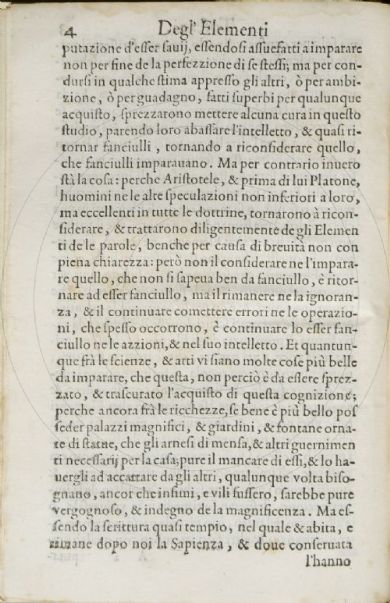 4 Degl' Elementi
putazione d'esser sauij, essendosi assuefatti a imparare
non per fine de la perfezzione di se stessi; ma per con-
dursi in qualche stima appresso gli altri, ò per ambi-
zione, ò per guadagno, fatti superbi per qualunque
acquisto, sprezzarono mettere alcuna cura in questo
studio, parendo loro abassare l'intelletto, & quasi ri-
tornar fanciulli, tornando a riconsiderare quello,
che fanciulli imparauano. Ma per contrario in uero
stà la cosa: perche Aristotele, & prima di lui Platone,
huomini ne le alte speculazioni non inferiori a loro,
ma eccellenti in tutte le dottrine, tornarono à ricon-
siderare, & trattarono diligentemente de gli Elemen
ti de le parole, benche per causa di breuità non con
piena chiarezza: però non il considerare ne l'impara-
re quello, che non si sapeua ben da fanciullo, è ritor-
nare ad esser fanciullo, ma il rimanere ne la ignoran-
za, & il continuare comettere errori ne le operazio-
ni, che spesso occorrono, è continuare lo esser fan-
ciullo ne le azzioni, & nel suo intelletto. Et quantun-
que frà le scienze, & arti vi siano molte cose più belle
da imparare, che questa, non perciò è da essere sprez-
zato, & trascurato l'acquisto di questa cognizione;
perche ancora frà le ricchezze, se bene è più bello pos
seder palazzi magnifici, & giardini, & fontane orna-
te di statue, che gli arnesi di mensa, & altri guernimen
ti necessarij per la casa; pure il mancare di essi, & lo ha-
uergli ad accattare da gli altri, qualunque volta biso-
gnano, ancor che infimi, e vili fussero, sarebbe pure
vergognoso, & indegno de la magnificenza. Ma es-
sendo la scrittura quasi tempio, nel quale & abita, e
rimane dopo noi la Sapienza, & doue conseruata
l'hanno